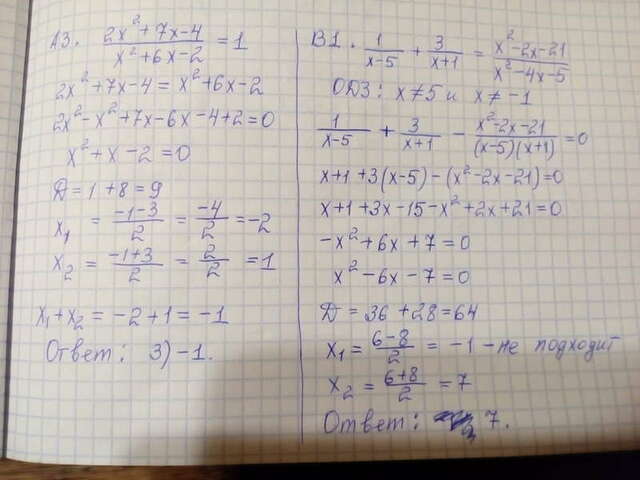 А3. (2x²+7x-4)/(x²+6x-2) = 1
2x²+7x-4 = x²+6x-2
2x²-x²+7x-6x-4+2=0
x²+x-2=0
D=1+8=9
x₁ = (-1-3)/2 = -4/2 = -2
x₂ = (-1+3)/2 = 2/2 = 1
x₁+x₂ = -2+1 = -1
Ответ: 3) -1.
В1. 1/(x-5) + 3/(x+1) = (x²-2x-21)/(x²-4x-5)
ОДЗ: x≠5 и x≠-1
1/(x-5) + 3/(x+1) - (x²-2x-21)/((x-5)(x+1)) = 0
x+1+3(x-5)-(x²-2x-21)=0
x+1+3x-15-x²+2x+21=0
-x²+6x+7=0
x²-6x-7=0
D=36+28=64
x₁ = (6-8)/2 = -1 - не подходит
x₂ = (6+8)/2 = 7
Ответ: 7.